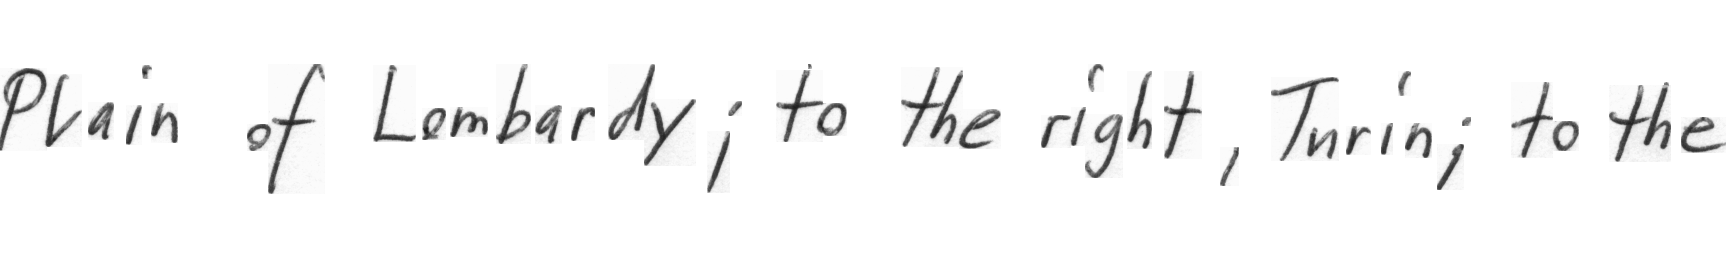 Plain of Lombardy; to the right, Turin; to the